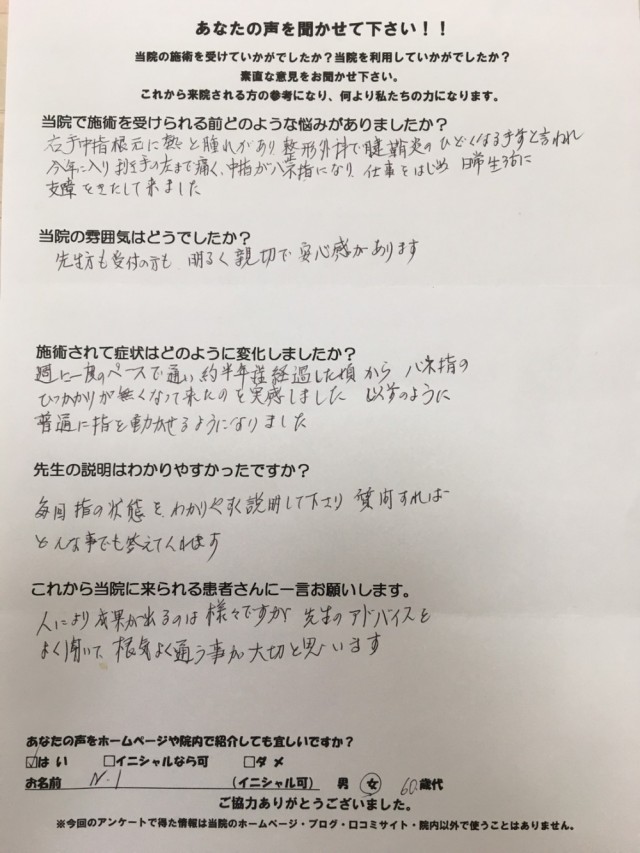 あなたの声を聞かせて下さい！！
当院の施術を受けていかがでしたか？当院を利用していかがでしたか？
素直な意見をお聞かせ下さい。
これから来院される方の参考になり、何より私たちの力になります。
当院で施術を受けられる前どのような悩みがありましたか？
右手中指根元に熱と腫れがあり 整形外科で腱鞘炎のひどくなる手前と言われ
今年に入り 利き手の左まで痛く、中指がバネ指になり 仕事をはじめ 日常生活に
支障をきたして来ました
当院の雰囲気はどうでしたか？
先生方も受付の方も 明るく親切で安心感があります
施術されて症状はどのように変化しましたか？
週に一度のペースで通い約半年程経過した頃から バネ指の
ひっかかりが無くなって来たのを実感しました 以前のように
普通に指を動かせるようになりました
先生の説明はわかりやすかったですか？
毎回 指の状態を、わかりやすく説明して下さり 質問すれば
どんな事でも答えてくれます
これから当院に来られる患者さんに一言お願いします。
人により成果が出るのは様々ですが 先生のアドバイスを
よく聞いて 根気よく通う事が大切と思います
あなたの声をホームページや院内で紹介しても宜しいですか？
☑はい □イニシャルなら可 □ダメ
お名前 N.I (イニシャル可) 男 女 60歳代
ご協力ありがとうございました。
※今回のアンケートで得た情報は当院のホームページ・ブログ・口コミサイト・院内以外で使うことはありません。